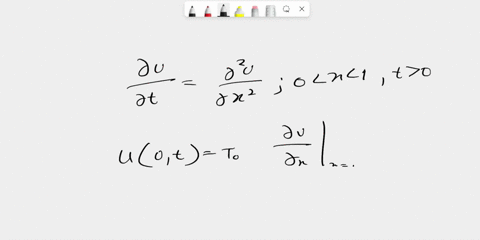 ∂u/∂t = ∂²u/∂x² ; 0<x<1 , t>0
u(0,t) = T₀ ∂u/∂x |ₓ₌